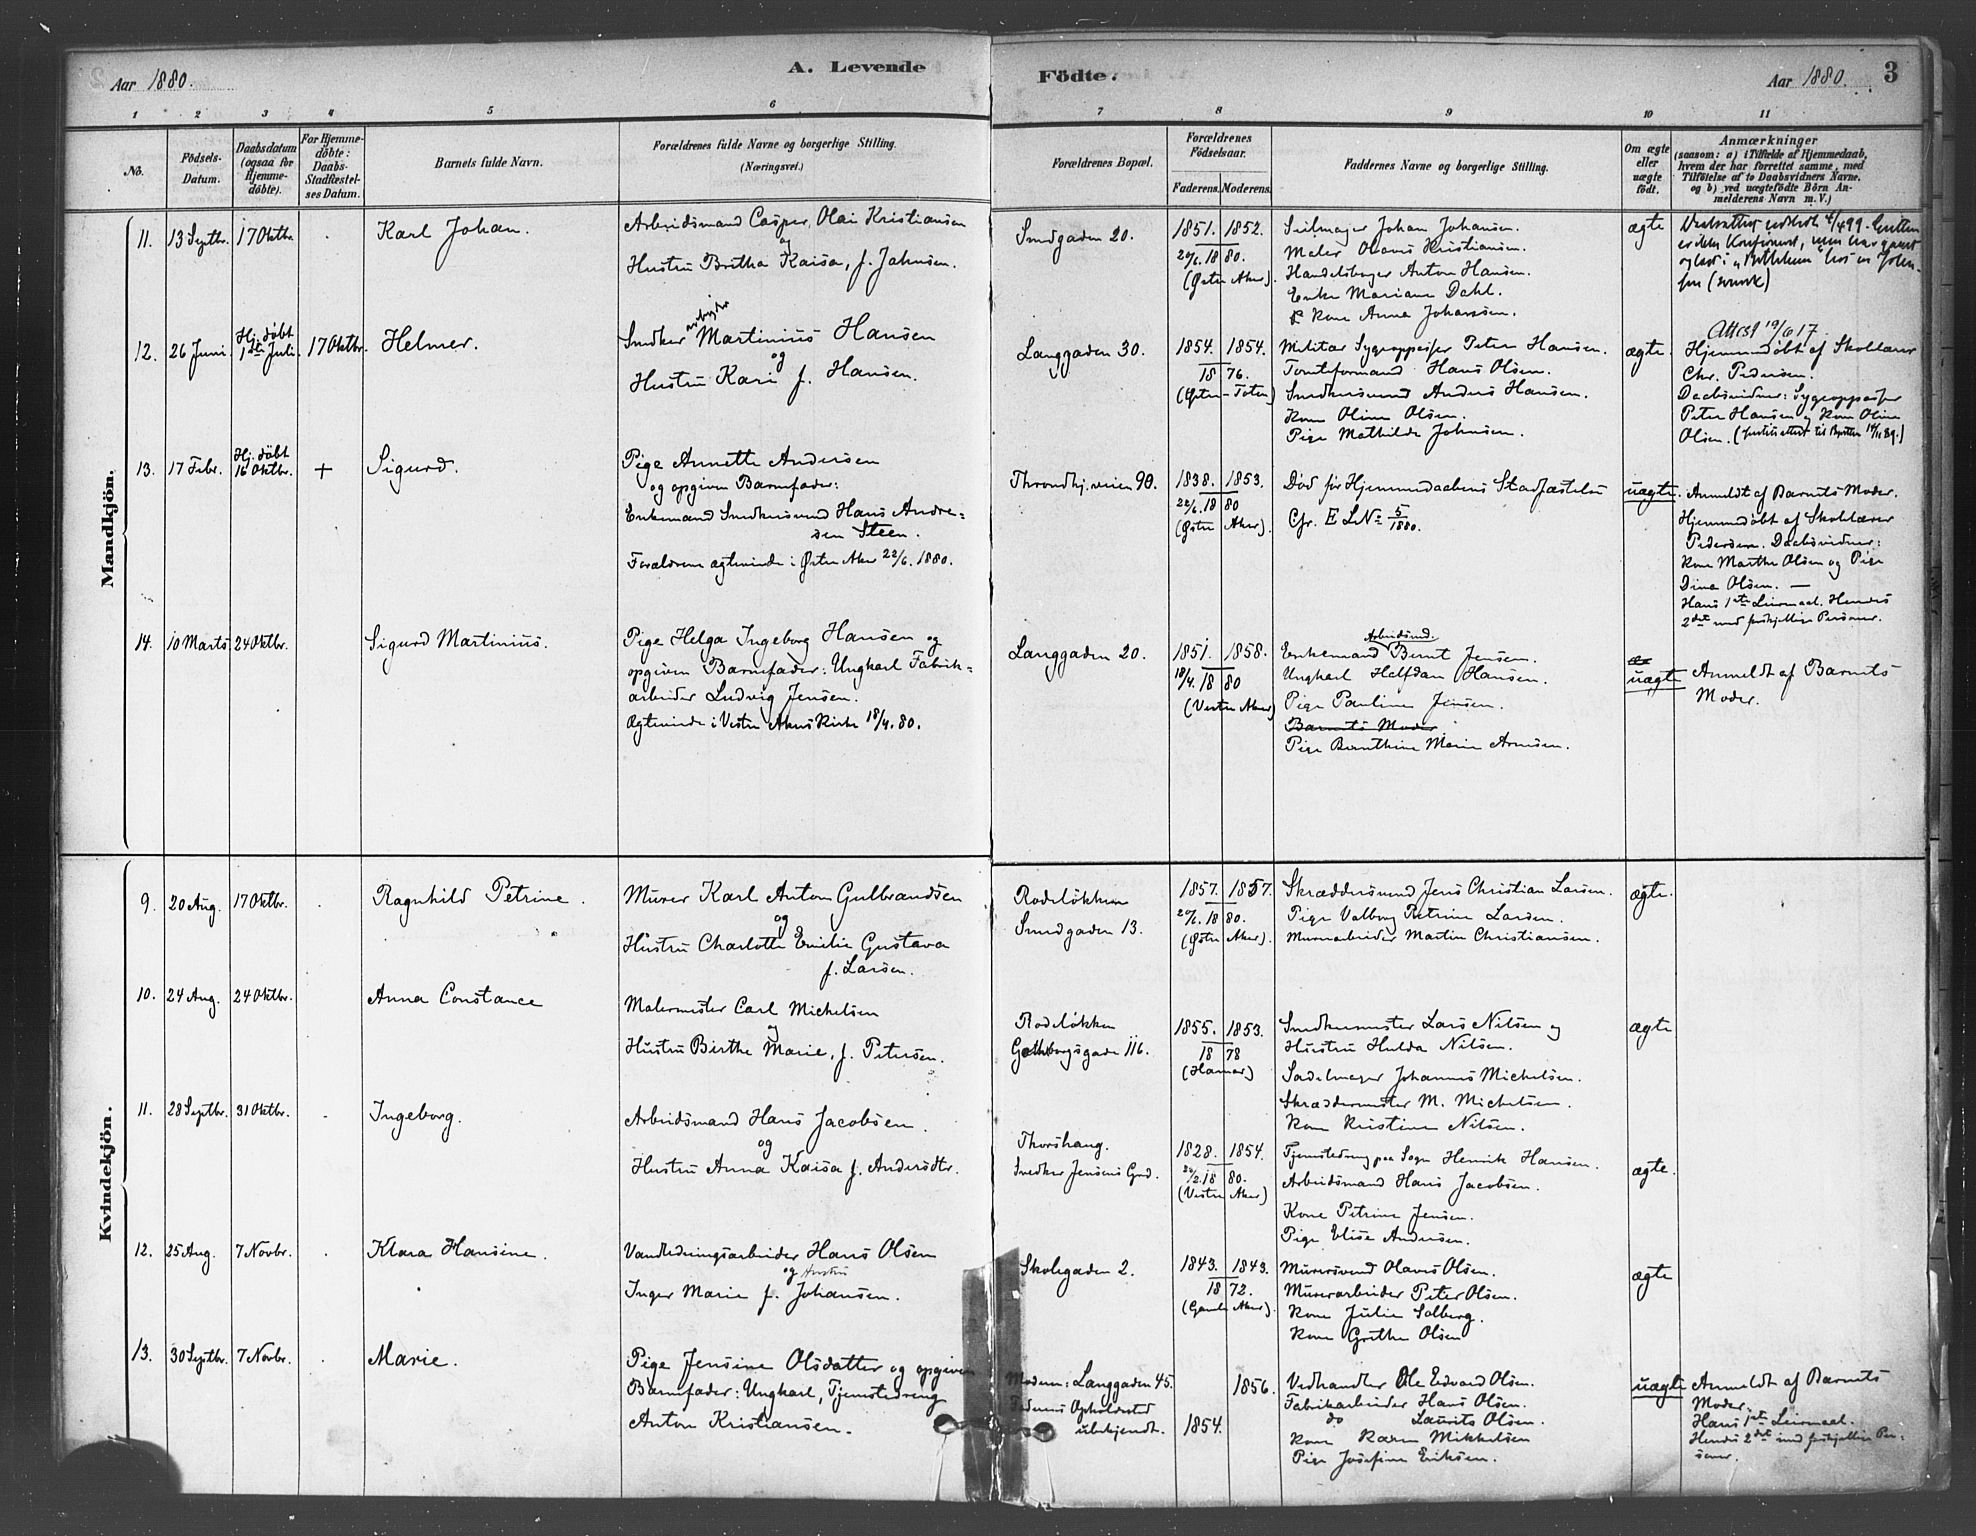 Aar 1880.
A. Levende
Födte.
Aar 1880.
3
1 2 3 4 5 6 7 8 9 10 11
No.
Födsels-
Datum.
Daabsdatum
(ogsaa for
Hjemme-
döbte).
For Hjemme-
döbte:
Daabs-
Stadfæstel-
ses Datum.
Barnets fulde Navn.
Forældrenes fulde Navne og borgerlige Stilling.
(Næringsvei.)
Forældrenes Bopæl.
Forældrenes
Födselsaar.
Faderens. Moderens.
Faddernes Navne og borgerlige Stilling.
Om ægte
eller
uægte
födt.
Anmærkninger
(saasom: a) i Tilfælde af Hjemmedaab,
hvem der har forrettet samme, med
Tilföielse af to Daabsvidners Navne,
og b) ved uægtefödte Börn An-
melderens Navn m. V.)
Mandkjön.
11. 13 Septbr. 17 Oktbr. Karl Johan.
Arbeidsmand Casper Olai Kristiansen
og
Hustru Britha Kaisa, f. Jahnsen.
Smedgaden 20.
1851. 1852.
20/6. 18 80.
(Østre Aker).
Seilmager Johan Johansen.
Maler Olavus Kristiansen.
Handelsborger Anton Hansen.
Enke Mariane Dahl.
Kone Anna Johansen.
ægte
12. 26 Juni. Hj. döbt
1ste Juli. 17 Oktbr. Helmer.
Snedker arbeider Martinius Hansen
og
Hustru Kari f. Hansen.
Langgaden 30.
1854. 1854.
18 76.
(Østre-Toten)
Militær Sygeoppasser Peter Hansen.
Tomteformand Hans Olsen.
Snedkersvend Anders Hansen.
Kone Oline Olsen.
Pige Mathilde Johnsen.
ægte.
Attest 19/6 17.
Hjemmedøbt af Skolelærer
Chr. Pedersen.
Daabsvidner: Sygeoppasser
Peter Hansen og Kone Oline
Olsen.
13. 17 Febr. Hj. döbt
16 Oktbr. + Sigurd.
Pige Annette Andersen
og opgiven Barnefader:
Enkemand Snedkersvend Hans Andre=
sen Steen.
Forældrene ægteviede i Østre Aker 22/6. 1880.
Throndhj.veien 90.
1838. 1853.
22/6. 18 80
(Østre Aker).
Død før Hjemmedaabens Stadfæstelse
Cfr. E L No: 5/1880.
uægte.
Anmeldt af Barnets Moder.
Hjemmedøbt af Skolelærer
Pedersen. Daabsvidner:
Kone Marthe Olsen og Pige
Dina Olsen. —
Hans 1ste Leiermaal. Hendes
2det med forskjellige Personer.
14. 10 Marts 24 Oktbr. Sigurd Martinius.
Pige Helga Ingeborg Hansen og
opgiven Barnefader: Ungkarl Fabrik=
arbeider Ludvig Jensen.
Ægteviede i Vestre Akers Kirke 18/4. 80.
Langgaden 20.
1851. 1858.
18/4. 18 80
(Vestre Aker)
Arbeidsmd.
Enkemand Bernt Jensen.
Ungkarl Halfdan Hansen.
Pige Pauline Jensen.
Barnets Moder
Pige Bernthine Marie Arnesen.
uægte
Anmeldt af Barnets
Moder.
Kvindekjön.
9. 20 Aug. 17 Oktbr. Ragnhild Petrine.
Murer Karl Anton Gulbrandsen
og
Hustru Charlotte Emilie Gustava
f. Larsen.
Rodeløkken
Smedgaden 13.
1857. 1857.
20/6. 18 80.
(Østre Aker).
Skræddersvend Jens Christian Larsen.
Pige Valborg Petrine Larsen.
Murerarbeider Martin Christiansen.
ægte.
10. 24 Aug. 24 Oktbr. Anna Constance
Malermester Carl Michelsen
og
Hustru Birthe Marie, f. Petersen.
Rodeløkken
Gøtheborgsgade 116.
1855. 1853.
18 78
(Hamar)
Snedkermester Lars Nilsen og
Hustru Hulda Nilsen.
Sadelmager Johannes Michelsen.
Skræddermester M. Michelsen.
Kone Kristine Nilsen.
ægte
11. 28 Septbr. 31 Oktbr. Ingeborg.
Arbeidsmand Hans Jacobsen.
og
Hustru Anna Kaisa f. Andersdtr.
Thorshaug.
Snedker Jensens Grd.
1828. 1854.
18 80.
(Vestre Aker)
Tjenestedreng paa Sogn Henrik Hansen.
Arbeidsmand Hans Jacobsen.
Kone Petrine Jensen.
Pige Elise Andersen.
ægte.
12. 25 Aug. 7 Novbr. Klara Hansine.
Vandledningsarbeider Hans Olsen
og Hustru
Inger Marie f. Johansen.
Skolegaden 2.
1843. 1843.
18 72.
(Gamle Aker).
Murersvend Olavus Olsen.
Murerarbeider Peter Olsen.
Kone Julie Solberg.
Kone Grethe Olsen
ægte
13. 30 Septbr. 7 Novbr. Marie.
Pige Jensine Olsdatter og opgiven
Barnefader: Ungkarl, Tjenestedreng
Anton Kristiansen.
Moderen: Langgaden 45.
Faderens Opholdssted
ubekjendt.
1856.
1854.
Vedhandler Ole Edvard Olsen.
Fabrikarbeider Hans Olsen.
do Laurits Olsen.
Kone Karen Mikkelsen
Pige Josefine Eriksen.
uægte
Anmeldt af Barnets
Moder.
Hans 1ste Leiermaal.
Hendes 2det med forskjellige Per-
soner.